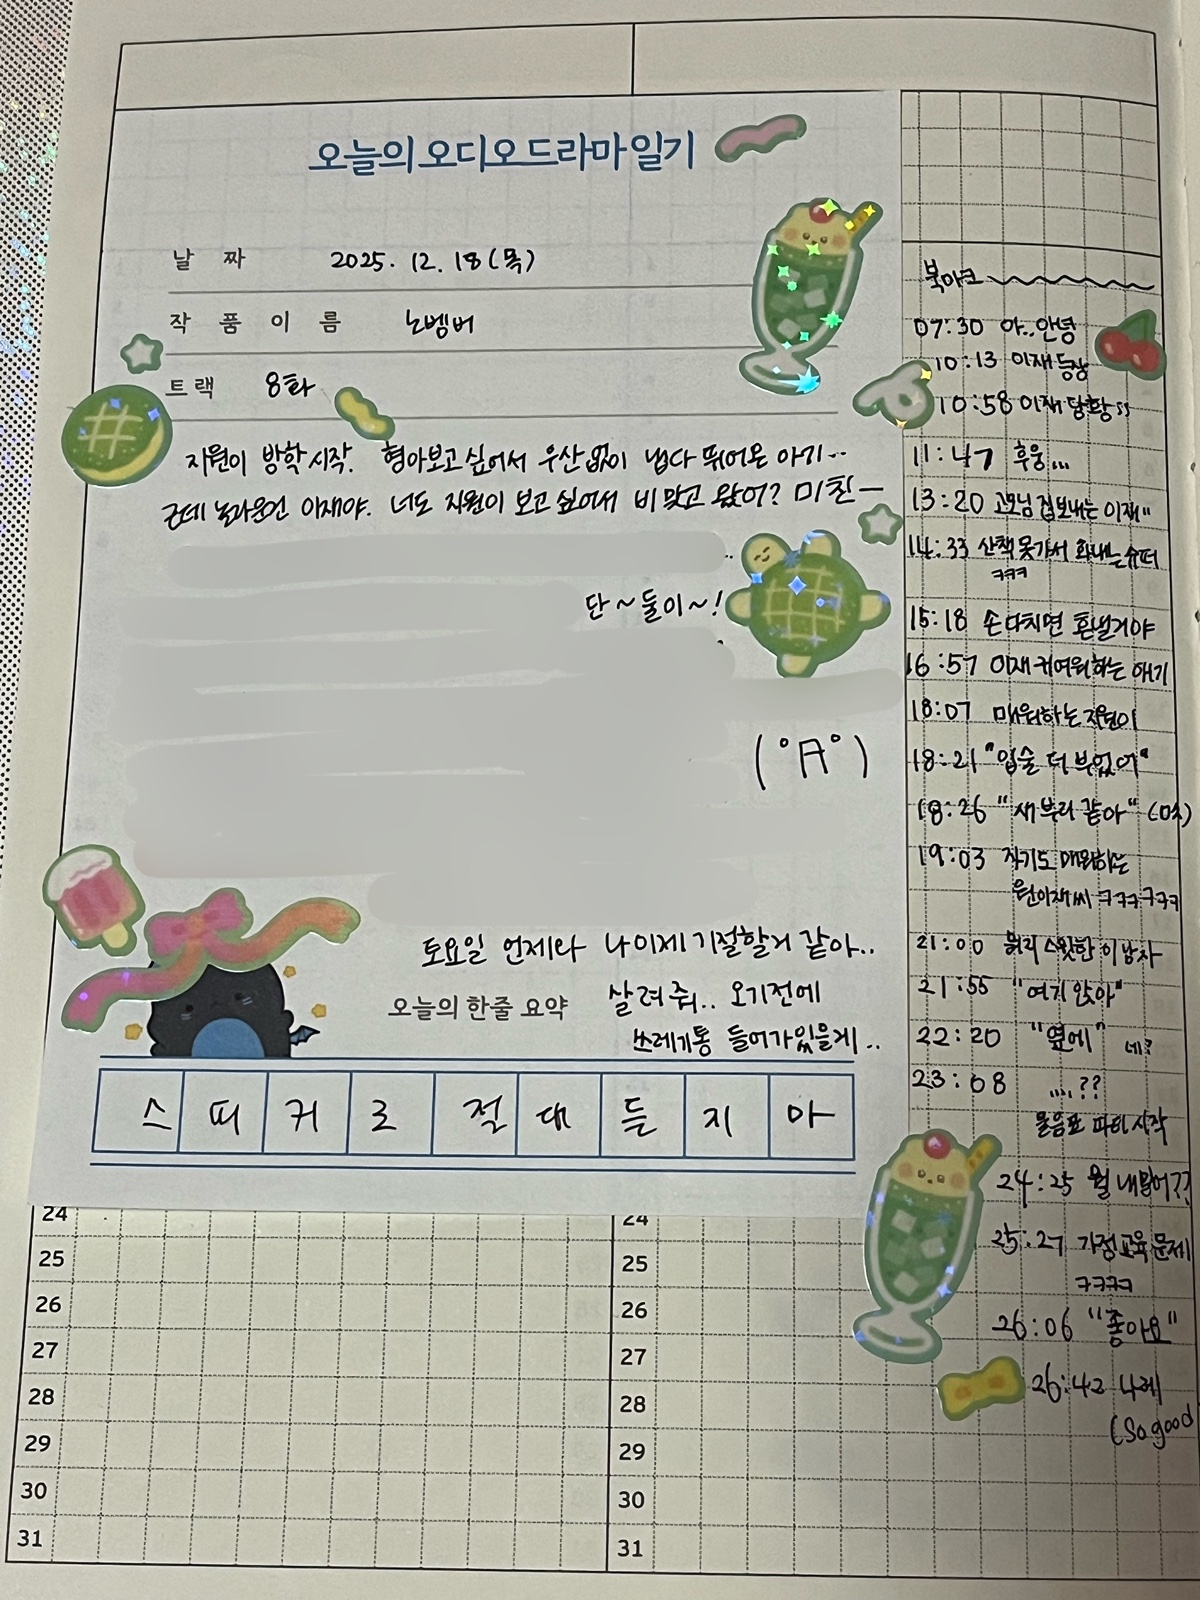 오늘의 오디오 드라마 일기
날 짜 2025. 12. 18 (목)
작 품 이 름 노벰버
트랙 8화
지원이 방학시작. 형아보고싶어서 우산없이 냅다 뛰어온 아기..
근데 놀라운건 이재야. 너도 지원이 보고싶어서 비맞고 왔어? 미친—
단~둘이~!
(°A°)
토요일 언제와 나 이제 기절할거 같아..
오늘의 한줄 요약 살려줘.. 오기전에
쓰레기통 들어가있을게..
스 띠 커 로 절 대 듣 지 마
24
25
26
27
28
29
30
31
24
25
26
27
28
29
30
31
북마크
07:30 아..안녕
10:13 이재 등장
10:58 이재 당황
11:47 후웅...
13:20 고모님 겁보내는 이재
14:33 산책 못가서 화내는 슈퍼
ㅋㅋㅋ
15:18 손 다치면 혼낼거야
16:57 이재 귀여워하는 애기
18:07 매워하는 지원이
18:21 "입술 더 부었어"
18:26 "새부리 같아"
19:03 자기도 매워하는
원이재씨 ㅋㅋㅋㅋㅋ
21:00 스윗한 이남자
21:55 "여기 앉아"
22:20 "옆에" 네?
23:08 ....??
물음표 파티 시작
24:25 뭘 내밀어??
25:27 가정교육 문제
ㅋㅋㅋㅋ
26:06 "좋아요"
26:42 나레
(So good